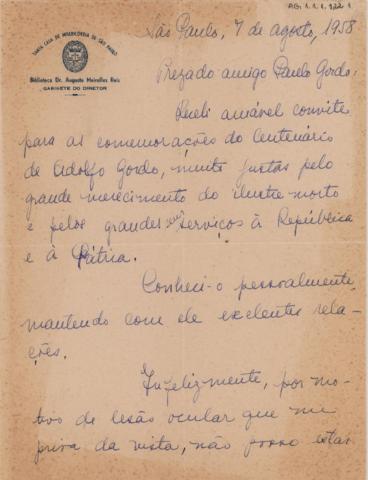 AG. 1.1.1.922.1
SANTA CASA DE MISERICÓRDIA DE SÃO PAULO
Biblioteca Dr. Augusto Meirelles Reis
GABINETE DO DIRETOR
São Paulo, 7 de agosto, 1958
Prezado amigo Paulo Gordo,
amável convite
para as comemorações do Centenário
de Adolfo Gordo, muito justas pelo
grande merecimento do ilustre morto
e pelos grandes seus serviços à República
e à Pátria.
Conheci-o pessoalmente,
mantendo com ele exelentes rela-
ções.
Infelizmente, por mo-
tivo de lesão ocular que me
priva da vista, não posso estar